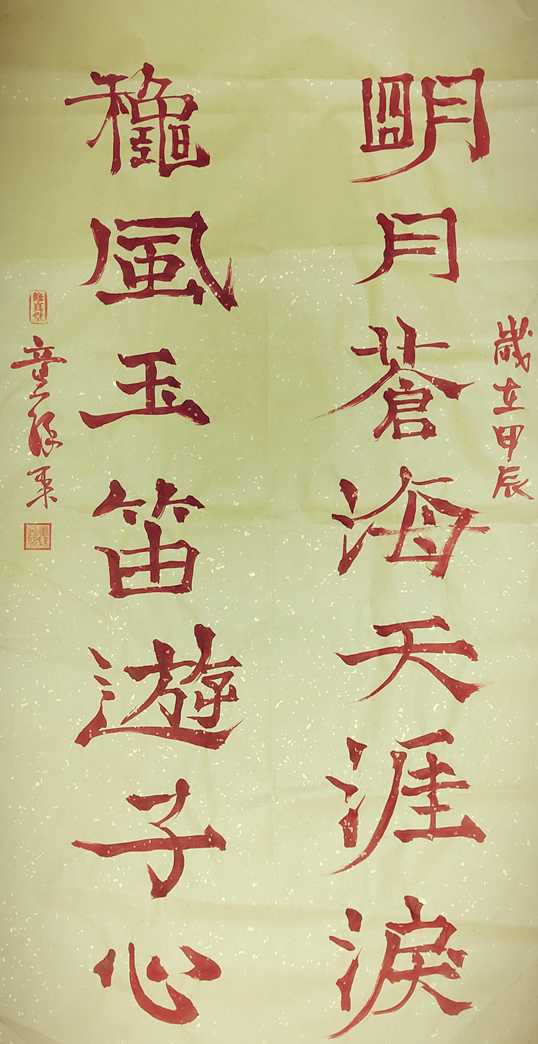 歲在甲辰
明月蒼海天涯淚
穐風玉笛遊子心